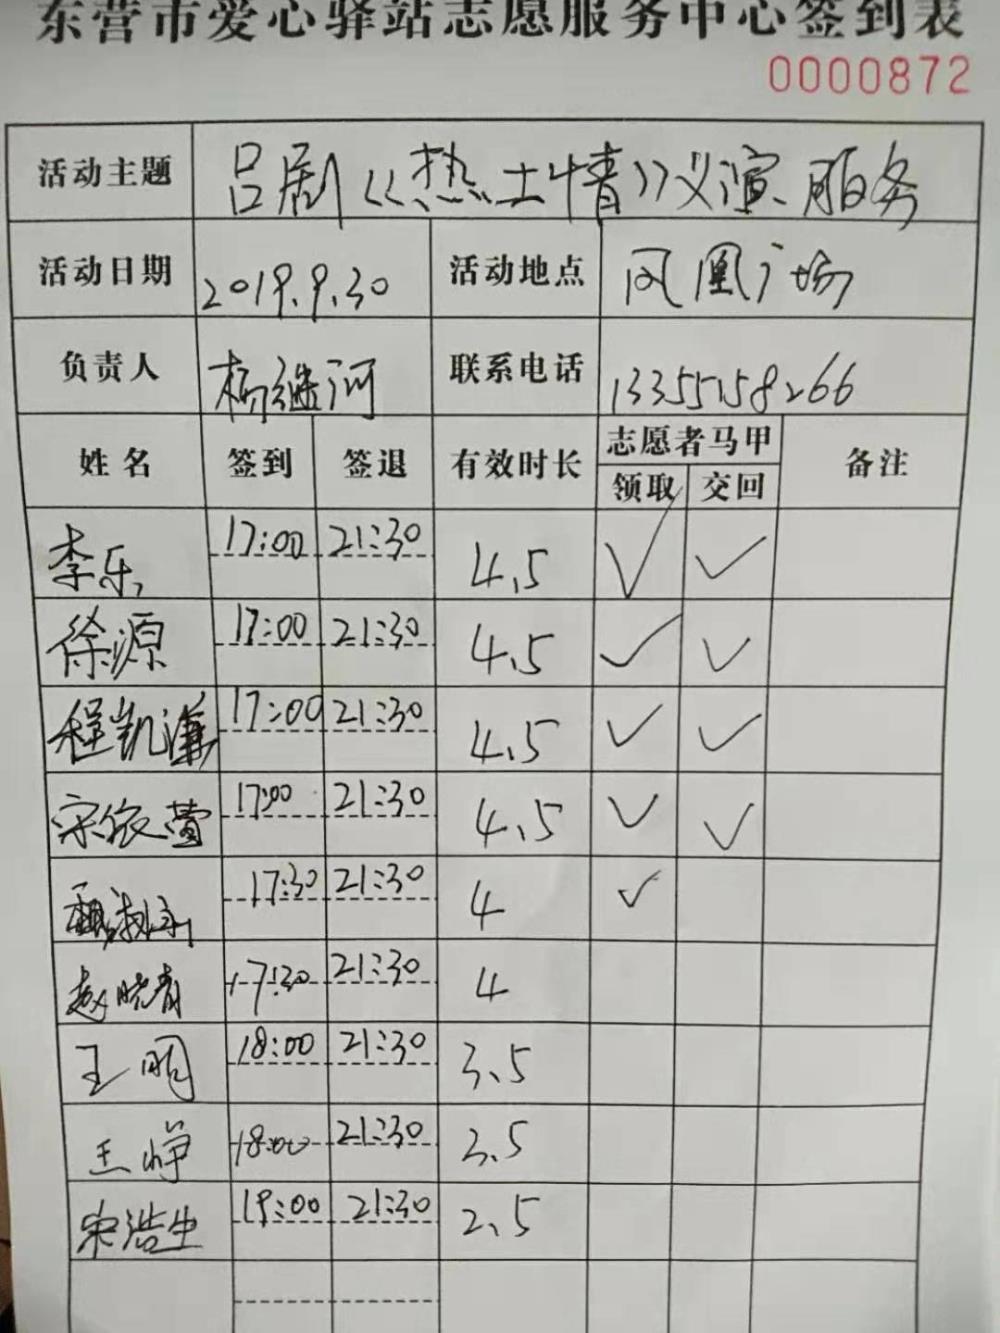 东营市爱心驿站志愿服务中心签到表
0000872
活动主题 吕剧《热土情》义演服务
活动日期 2019.9.30 活动地点 凤凰广场
负责人 杨继河 联系电话 13355158266
姓名 签到 签退 有效时长 志愿者马甲 备注
领取 交回
李乐 17:00 21:30 4.5 ✓ ✓
徐源 17:00 21:30 4.5 ✓ ✓
程凯濂 17:00 21:30 4.5 ✓ ✓
宋依萱 17:00 21:30 4.5 ✓ ✓
17:30 21:30 4 ✓
赵晓青 17:30 21:30 4
王明 18:00 21:30 3.5
王峥 18:00 21:30 3.5
宋浩生 19:00 21:30 2.5